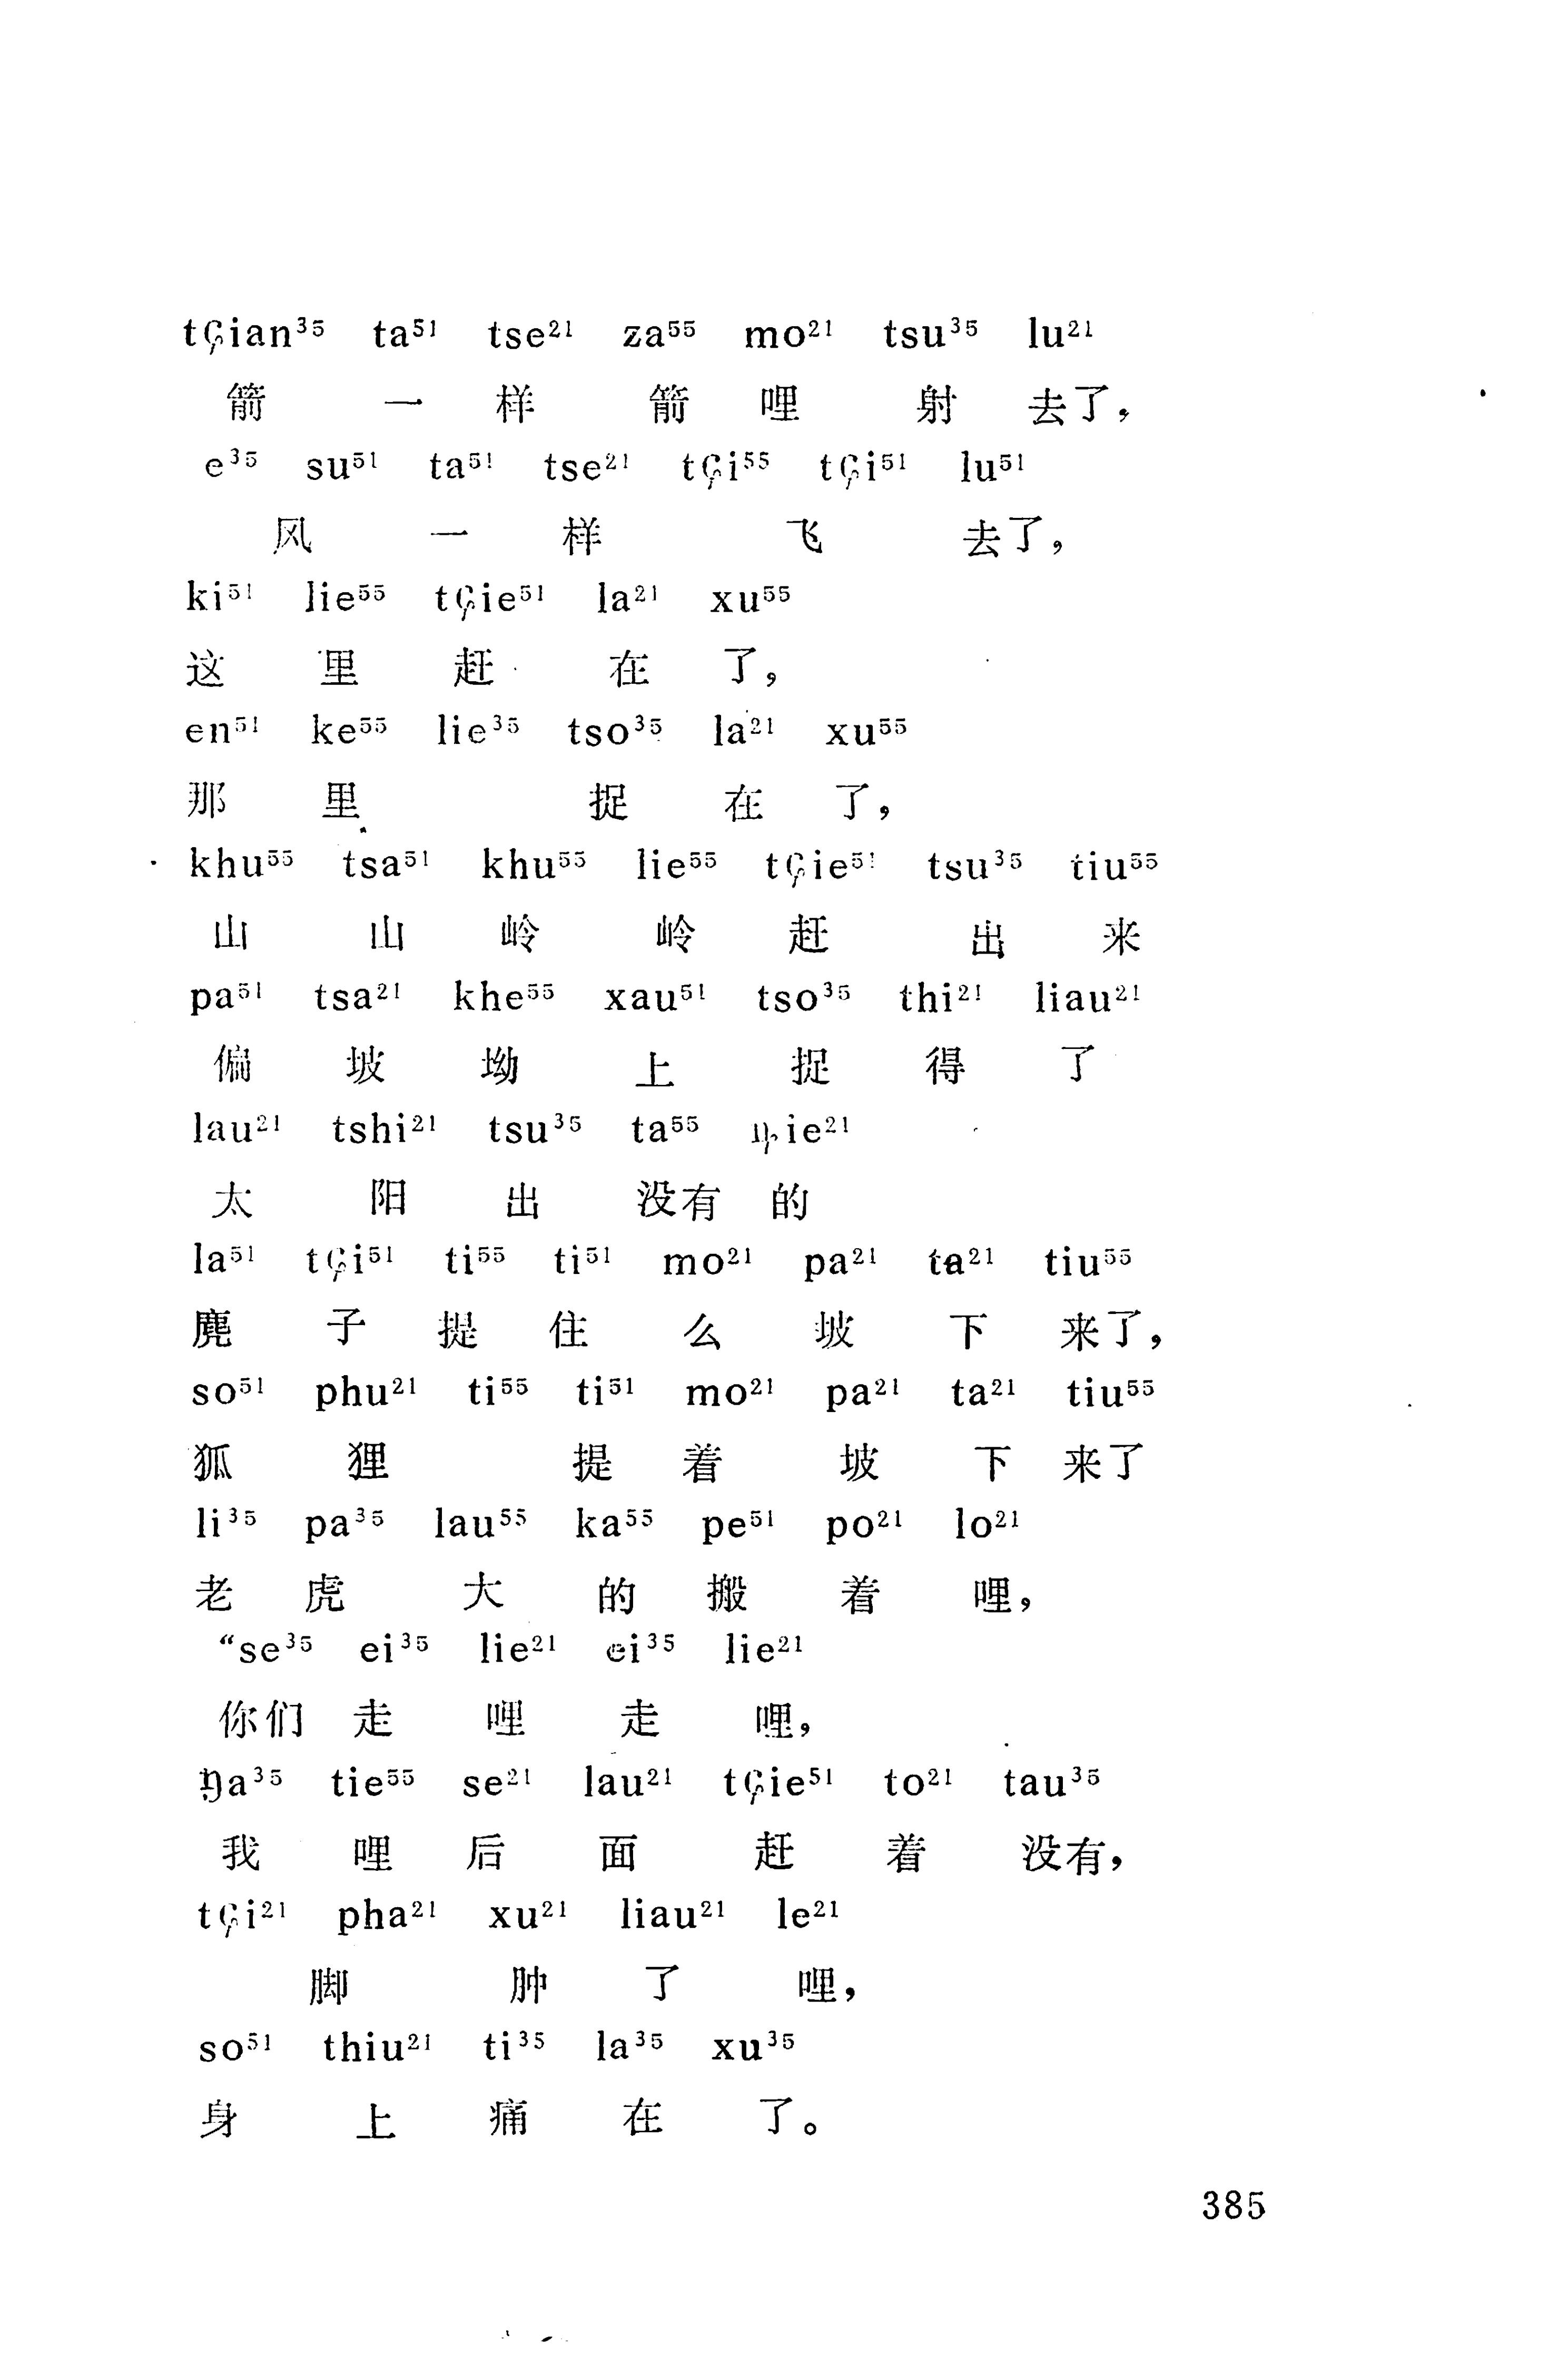 tɕian³⁵ ta⁵¹ tse²¹ za⁵⁵ mo²¹ tsu³⁵ lu²¹
箭 一 样 箭 哩 射 去了，
e³⁵ su⁵¹ ta⁵¹ tse²¹ tɕi⁵⁵ tɕi⁵¹ lu⁵¹
风 一 样 飞 去了，
ki⁵¹ lie⁵⁵ tɕie⁵¹ la²¹ xu⁵⁵
这 里 赶 在 了，
en⁵¹ ke⁵⁵ lie³⁵ tso³⁵ la²¹ xu⁵⁵
那 里 捉 在 了，
khu⁵⁵ tsa⁵¹ khu⁵⁵ lie⁵⁵ tɕie⁵¹ tsu³⁵ tiu⁵⁵
山 山 岭 岭 赶 出 来
pa⁵¹ tsa²¹ khe⁵⁵ xau⁵¹ tso³⁵ thi²¹ liau²¹
偏 坡 坳 上 捉 得 了
lau²¹ tshi²¹ tsu³⁵ ta⁵⁵ ȵie²¹
太 阳 出 没有 的
la⁵¹ tɕi⁵¹ ti⁵⁵ ti⁵¹ mo²¹ pa²¹ ta²¹ tiu⁵⁵
麂 子 提 住 么 坡 下 来了，
so⁵¹ phu²¹ ti⁵⁵ ti⁵¹ mo²¹ pa²¹ ta²¹ tiu⁵⁵
狐 狸 提 着 坡 下 来了
li³⁵ pa³⁵ lau⁵⁵ ka⁵⁵ pe⁵¹ po²¹ lo²¹
老 虎 大 的 搬 着 哩，
“se³⁵ ei³⁵ lie²¹ ei³⁵ lie²¹
你们 走 哩 走 哩，
ŋa³⁵ tie⁵⁵ se²¹ lau²¹ tɕie⁵¹ to²¹ tau³⁵
我 哩 后 面 赶 着 没有，
tɕi²¹ pha²¹ xu²¹ liau²¹ le²¹
脚 肿 了 哩，
so⁵¹ thiu²¹ ti³⁵ la³⁵ xu³⁵
身 上 痛 在 了。
385